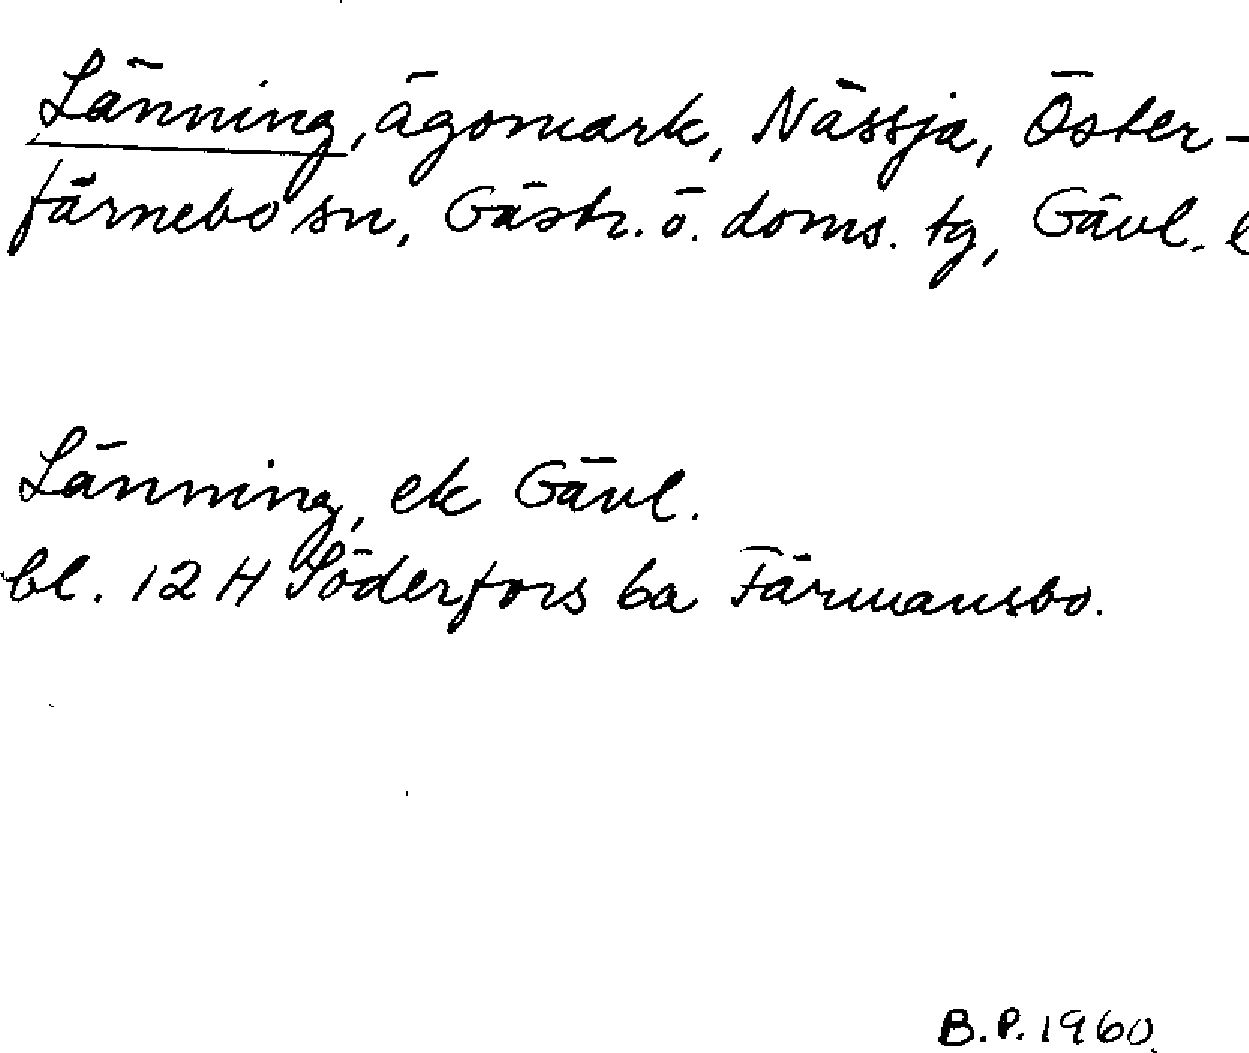 Länning, ägomark, Nässja, Öster-
färnebo sn, Gästr. ö. doms. tg, Gävl. l
Länning, ek Gävl.
bl. 12 H Söderfors ba Färmansbo.
B.P. 1960.